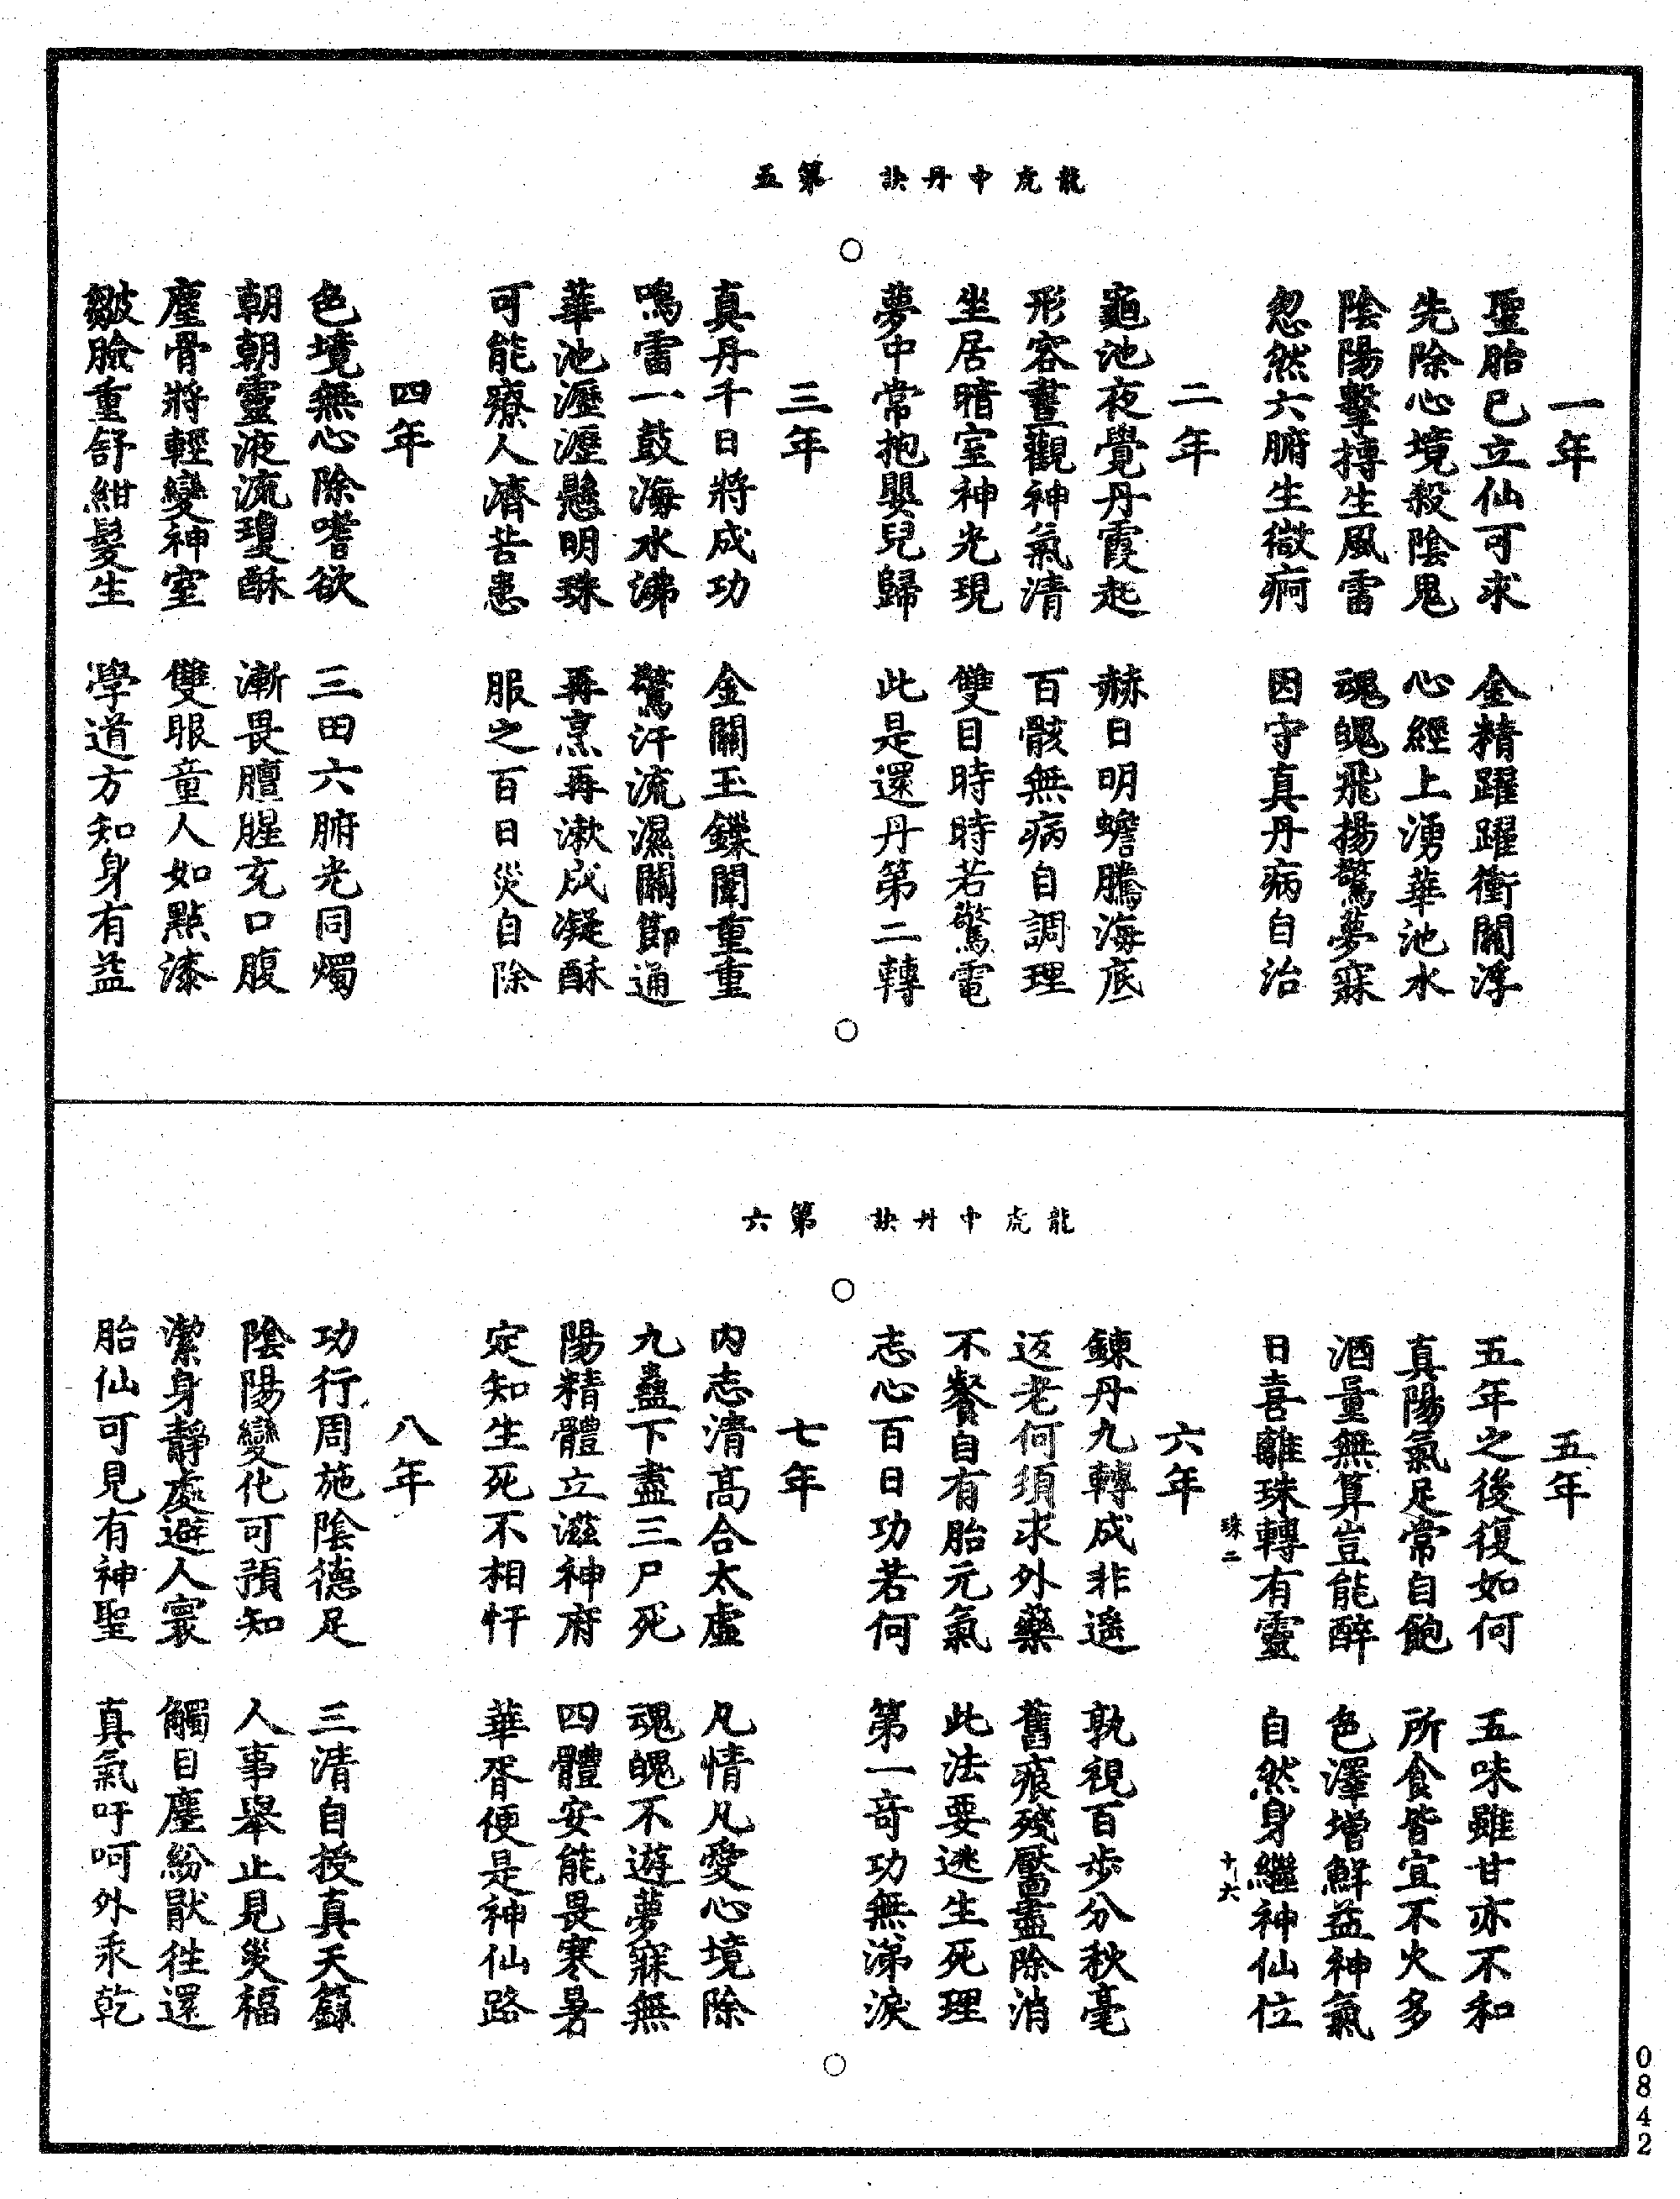 龍虎中丹訣　第五
一年
聖胎已立仙可求　金精躍躍衝關浮
先除心境殺陰鬼　心經上湧華池水
陰陽擊搏生風雷　魂魄飛揚驚夢寐
忽然六腑生微痾　因守真丹病自治
二年
龜池夜覺丹霞起　赫日明蟾騰海底
形容晝觀神氣清　百骸無病自調理
坐居暗室神光現　雙目時時若驚電
夢中常抱嬰兒歸　此是還丹第二轉
三年
真丹千日將成功　金關玉鏁闔重重
鳴雷一鼓海水沸　驚汗流濕關節通
華池瀝瀝懸明珠　再烹再漱成凝酥
可能療人濟苦患　服之百日災自除
四年
色境無心除嗜欲　三田六腑光同燭
朝朝靈液流瓊酥　漸畏膻腥充口腹
塵骨將輕變神室　雙眼童人如點漆
皺臉重舒紺髮生　學道方知身有益
龍虎中丹訣　第六
五年
五年之後復如何　五味雖甘亦不和
真陽氣足常自飽　所食皆宜不火多
酒量無算豈能醉　色澤增鮮益神氣
日喜離珠轉有靈　自然身繼神仙位
珠二　十六
六年
鍊丹九轉成非遙　孰視百步分秋毫
返老何須求外藥　舊痕殘靨盡除消
不餐自有胎元氣　此法要逃生死理
志心百日功若何　第一奇功無涕淚
七年
內志清高合太虛　凡情凡愛心境除
九蠱下盡三尸死　魂魄不遊夢寐無
陽精體立滋神府　四體安能畏寒暑
定知生死不相忓　華胥便是神仙路
八年
功行周施陰德足　三清自授真天籙
陰陽變化可預知　人事舉止見災福
潔身靜處避人寰　觸目塵紛猒往還
胎仙可見有神聖　真氣吁呵外汞乾
0842